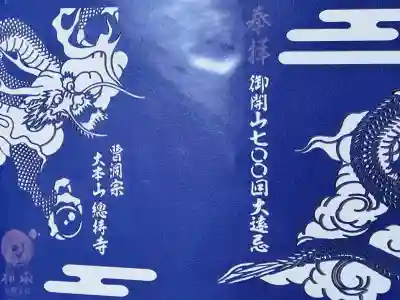 奉拝
御開山七〇〇回大遠忌
曹洞宗
大本山 總持寺